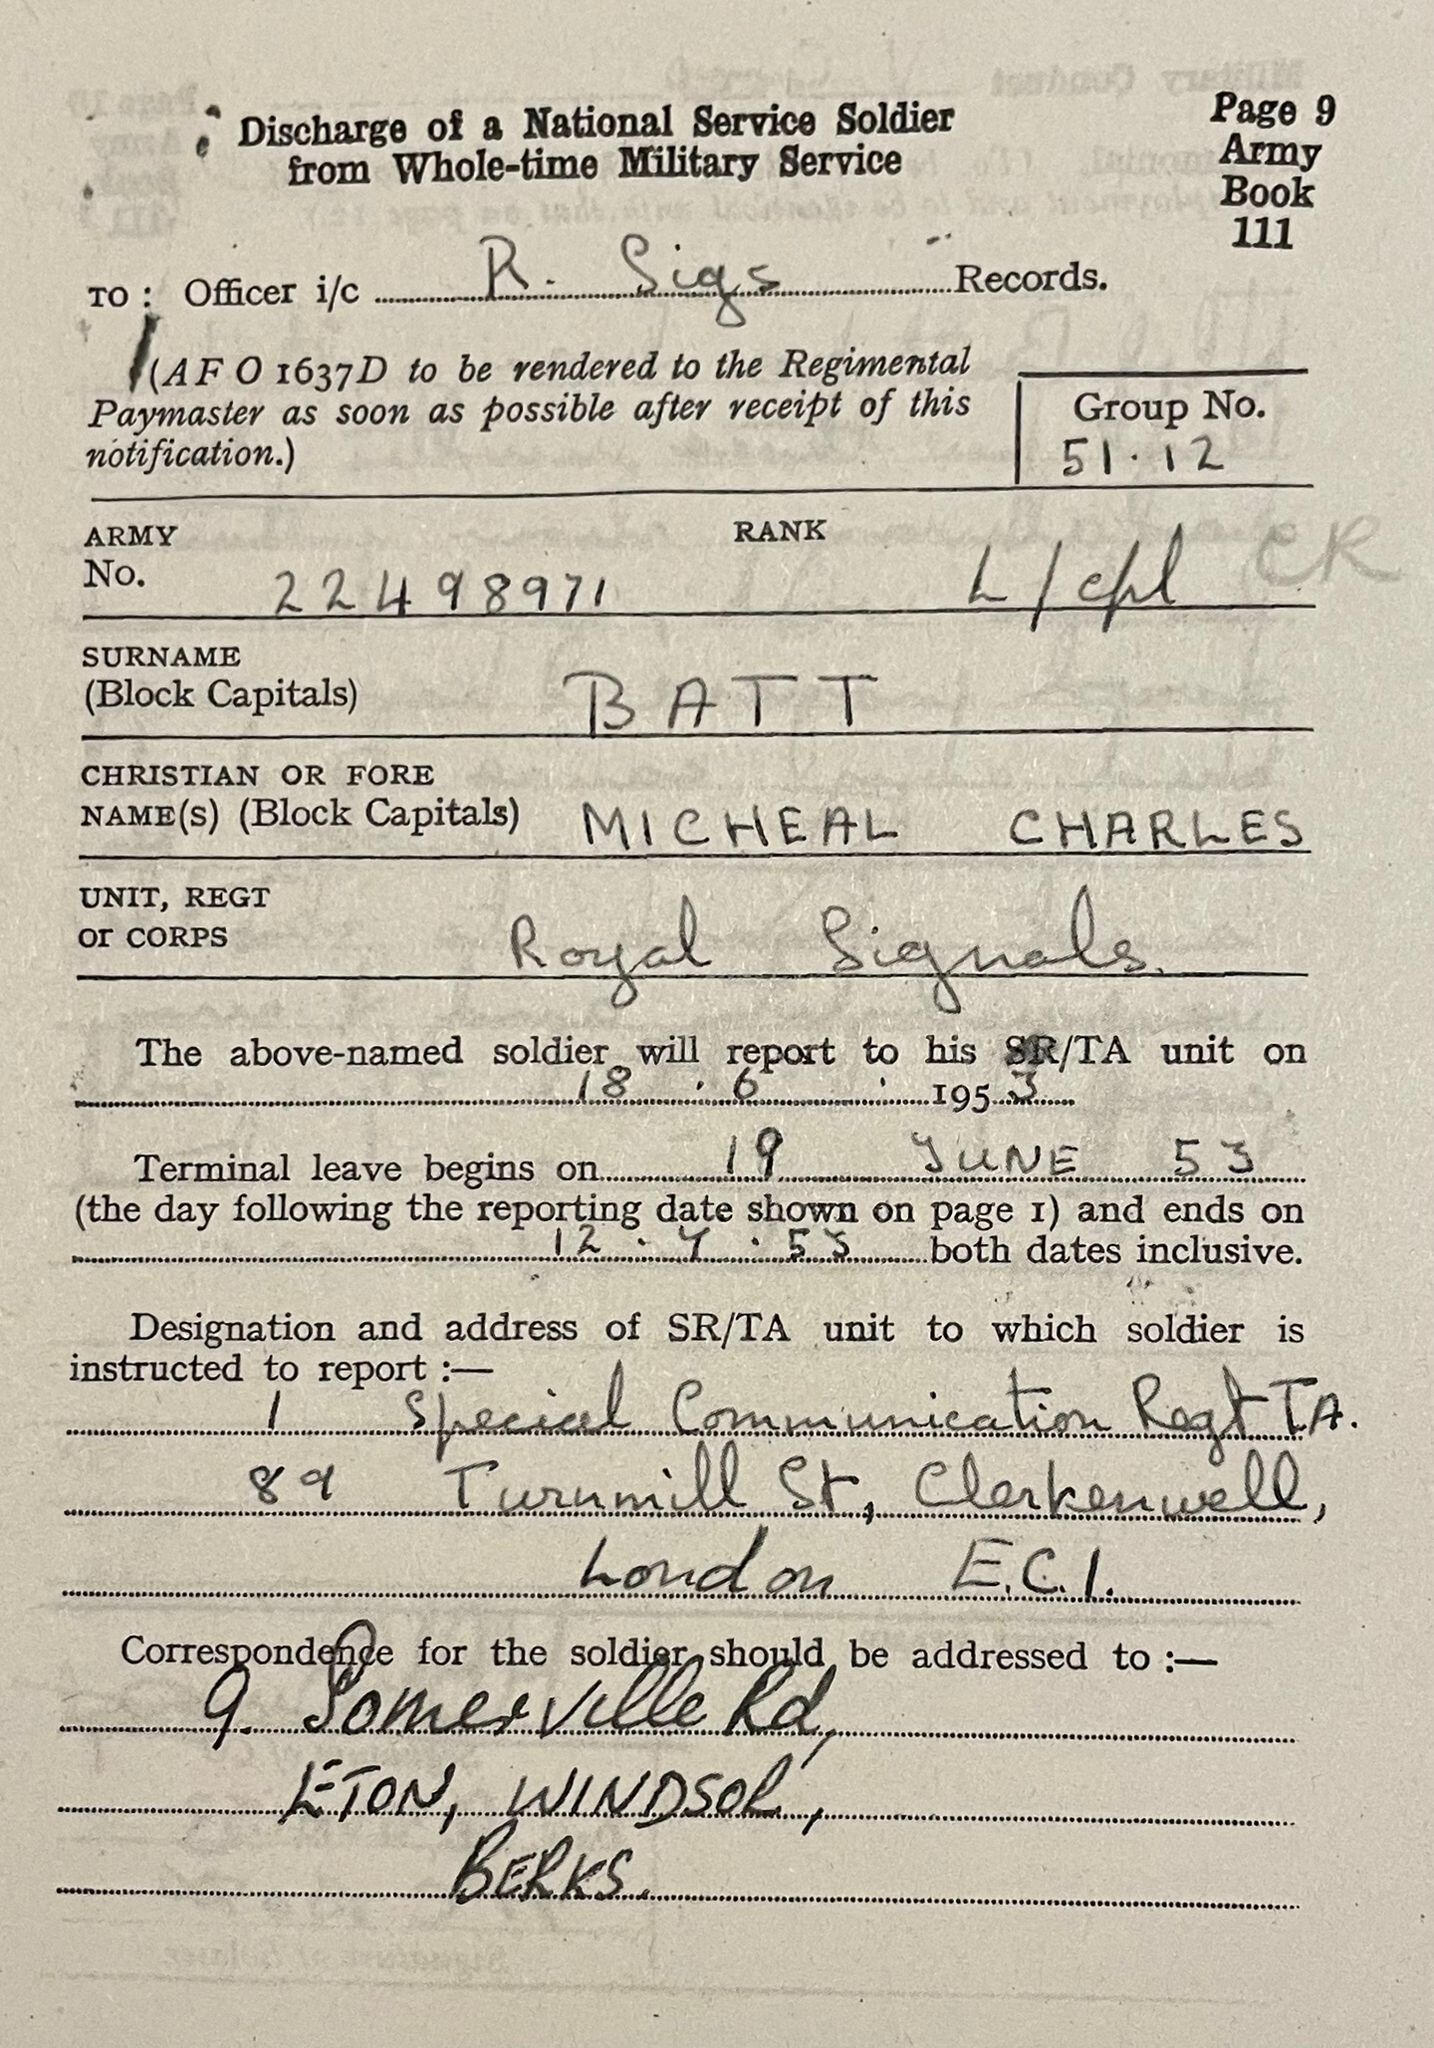 Discharge of a National Service Soldier
from Whole-time Military Service
Page 9
Army
Book
111
TO : Officer i/c R. Sigs Records.
(AF O 1637D to be rendered to the Regimental
Paymaster as soon as possible after receipt of this
notification.)
Group No.
51.12
ARMY
No. 22498971
RANK
L/cpl CR
SURNAME
(Block Capitals) BATT
CHRISTIAN OR FORE
NAME(S) (Block Capitals) MICHEAL CHARLES
UNIT, REGT
or CORPS Royal Signals.
The above-named soldier will report to his SR/TA unit on
18 . 6 . 1953
Terminal leave begins on 19 JUNE 53
(the day following the reporting date shown on page 1) and ends on
12 . 7 . 53 both dates inclusive.
Designation and address of SR/TA unit to which soldier is
instructed to report :—
1 Special Communication Regt TA.
89 Turnmill St, Clerkenwell,
London E.C.1.
Correspondence for the soldier should be addressed to :—
9. Somerville Rd,
ETON, WINDSOR,
BERKS.